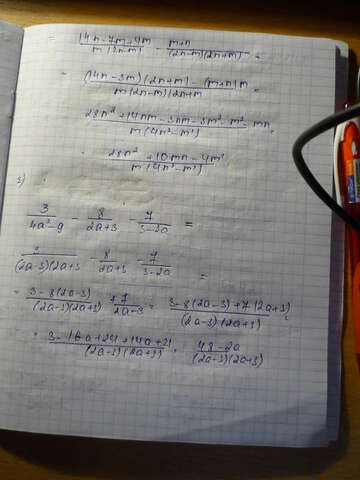 = (14n-7m+4m)/(m(2n-m)) - (m+n)/((2n-m)(2n+m)) =
= ((14n-3m)(2n+m) - (m+n)m)/(m(2n-m)(2n+m) =
(28n²+14nm-3nm-3m²-m²-mn)/(m(4n²-m²)) =
(28n²+10mn-4m²)/(m(4n²-m²))
3/(4a²-9) - 8/(2a+3) - 7/(3-2a) =
3/((2a-3)(2a+3) - 8/(2a+3) - 7/(3-2a) =
= (3-8(2a-3))/((2a-3)(2a+3)) + 7/(2a-3) = (3-8(2a-3)+7(2a+3))/((2a-3)(2a+3)) =
= (3-16a+24+14a+21)/((2a-3)(2a+3)) = (48-2a)/((2a-3)(2a+3))